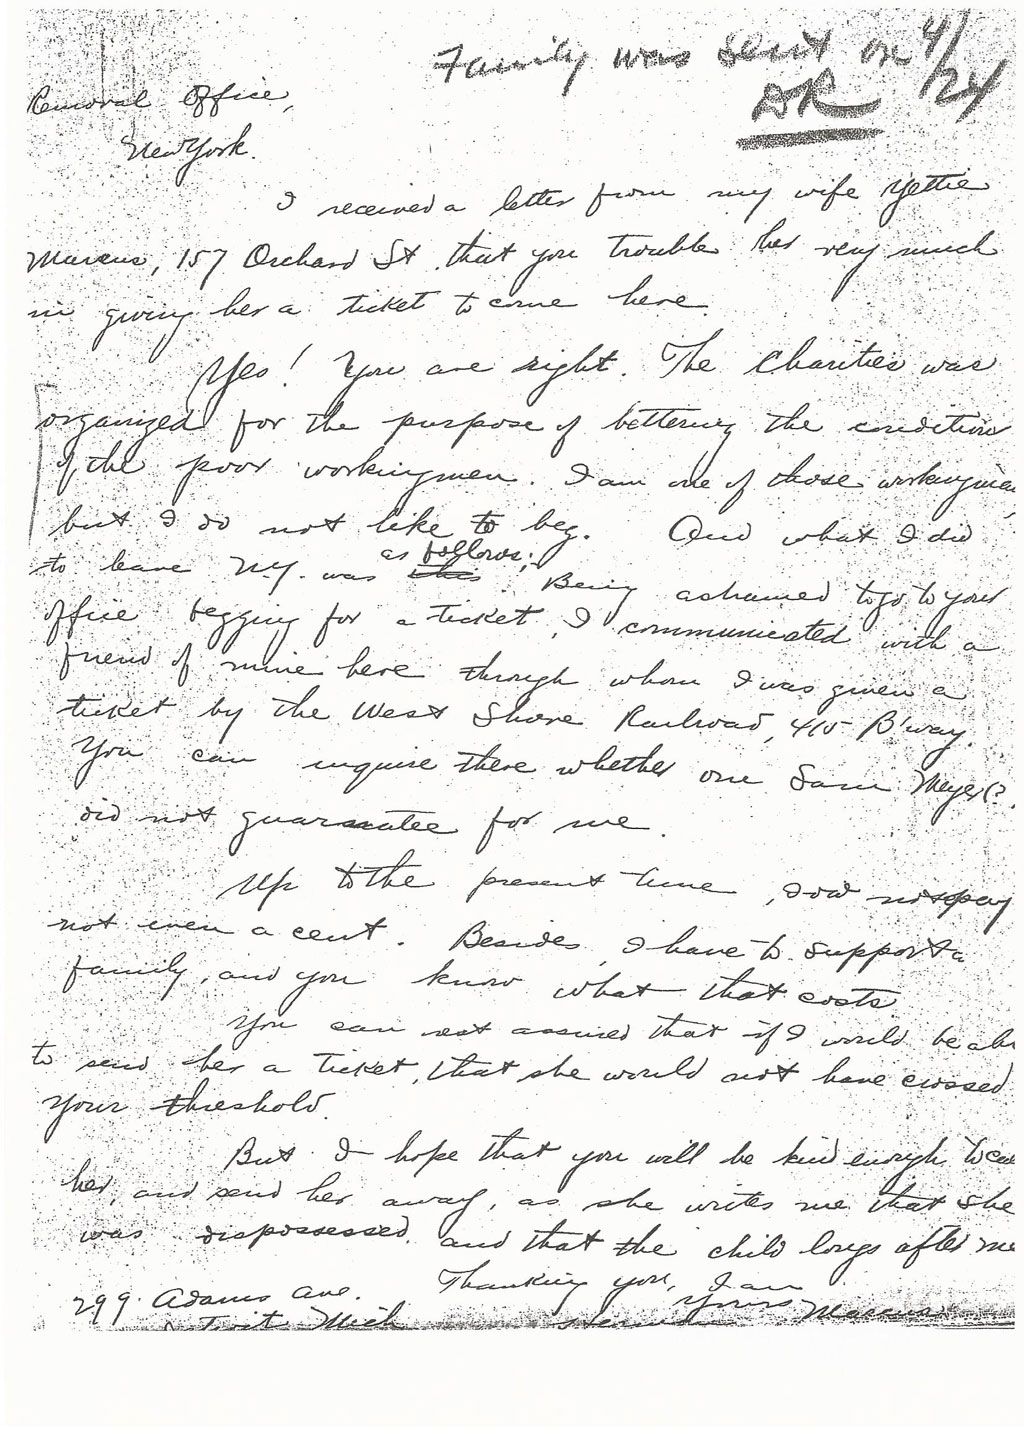 Family was sent on 4/24
DR
Removal Office,
New York.
I received a letter from my wife Yettie
Marcus, 157 Orchard St. that you trouble her very much
in giving her a ticket to come here.
Yes! You are right. The Charities was
organized for the purpose of bettering the condition
of the poor workingmen. I am one of those workingmen
but I do not like to beg. And what I did
to leave N.Y. was this as follows: Being ashamed to go to your
office begging for a ticket, I communicated with a
friend of mine here through whom I was given a
ticket by the West Shore Railroad, 415 B'way.
You can inquire there whether one Sam Meyer(?)
did not guarantee for me.
Up to the present time, I did not pay
not even a cent. Besides, I have to support a
family, and you know what that costs.
You can rest assured that if I would be abl
to send her a ticket, that she would not have crossed
your threshold.
But I hope that you will be kind enough to
her, and send her away, as she writes me that she
was dispossessed, and that the child longs after me
Thanking you, I am
Yours
299 Adams Ave.
Detroit Mich
Herman Marcus